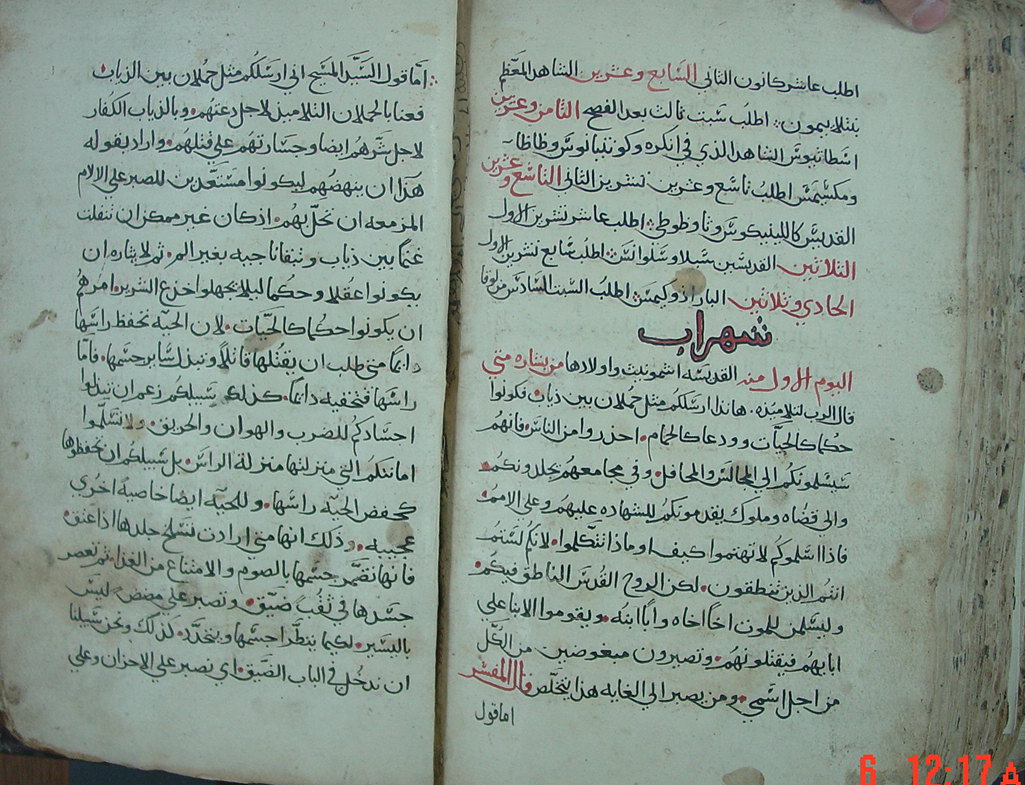 اطلب عاشر كانون الثاني السابع وعشرين الشاهد المعظم
بنتلايمون اطلب سبت ثالث بعد الفصح الثامن وعشرين
الشاهد الذي في انكره وكونتيانوس وظاظا
ومكسيمس اطلب تاسع وعشرين تشرين الثاني التاسع وعشرين
القديس كاللينيكوس وثاوطوطي اطلب عاشر تشرين الاول
الثلاثين القديسين سيلا وسلوانس اطلب سابع تشرين الاول
الحادي وثلاثين البار اطلب السبت السادس من لوقا
شهر اب
اليوم الاول منه القديسه اشمونيت واولادها من بشاره متي
قال الرب لتلاميذه هانذا ارسلكم مثل حملان بين ذياب فكونوا
حكما كالحيات وودعا كالحمام احذروا من الناس فانهم
سيسلمونكم الي المجالس والمحافل وفي مجامعهم يجلدونكم
والي قضاه وملوك يقدمونكم للشهاده عليهم وعلي الامم
فاذا اسلموكم لا تهتموا كيف او ماذا تتكلموا لانكم لستم
انتم الذين تنطقون لكن الروح القدس الناطق فيكم
وليسلمن للموت اخا اخاه وابا ابنه ويقوموا الابنا علي
ابايهم فيقتلونهم وتصيرون مبغوضين من الكل
من اجل اسمي ومن يصبر الي الغايه هذا يتخلص قال المفسر
اما قول
اما قول السيد المسيح اني ارسلكم مثل حملان بين الذياب
فعنا بالحملان التلاميذ لاجل دعتهم وبالذياب الكفار
لاجل شرهم ايضا وجسارتهم علي قتلهم واراد بقوله
هذا ان ينهضهم ليكونوا مستعدين للصبر علي الالام
المزمعه ان تحل بهم اذ كان غير ممكن ان تنفلت
غنما بين ذياب وتبقا ناجيه بغير الم ثم لايثاره ان
يكونوا عقلا وحكما ليلا يجهلوا اخزع الشرير امرهم
ان يكونوا حكما كالحيات لان الحيه تحفظ راسها
دايما متي طلب ان يقتلها قاتلا وتبذل ساير جسمها فاما
راسها فتخفيه دايما كذلك سبيلكم زعم ان تبذلوا
اجسادكم للضرب والهوان والحريق ولا تسلموا
امانتكم التي منزلتها منزلة الراس بل سبيلكم ان تحفظوها
كحفض الحيه راسها وللحيه ايضا خاصيه اخري
عجيبه وذلك انها متي ارادت تسلخ جلدها اذا عتق
فانها تقمر جسمها بالصوم والامتناع من الغدا ثم تعصر
جسدها في ثقب ضيق وتصبر علي مضض ليس
باليسير لكيما يتطرا جسمها ويتجدد لذلك ونحن سبيلنا
ان ندخل في الباب الضيق اي نصبر علي الاحزان وعلي
6 12:17